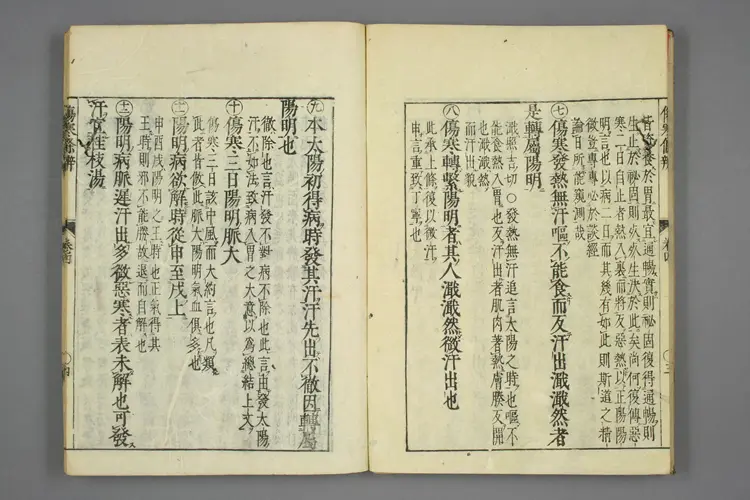 養於胃最宜通暢實則祕固復得通暢則
生止於祕固則疾疾生於此矣尚何復傳惡
寒二日自止者熱入裏而將反惡熱以正陽陽
明言也以病二日而其幾有如此則斯道之精
微豈專專必於談經
論者所能窺測哉
㊆傷寒發熱無汗嘔不能食而反汗出濈濈然者
是轉屬陽明
濈照吉切○發熱無汗追言太陽之時也嘔不
能食熱入胃也反汗出者肌肉著熱膚腠反開
也濈濈然
而汗出貌
㊇傷寒轉繫陽明者其人濈濈然微汗出也
此承上條復以微汗
申言重致丁寧也
㊈本太陽初得病時發其汗汗先出不徹因轉屬
陽明也
徹除也言汗發不對病不除也此言由發太陽
汗不如法致病入胃之大意以為總結上文
㊉傷寒三日陽明脈大
傷寒三日該中風而大約言也凡類
此者皆倣此脈大陽明氣血俱多也
陽明病欲解時從申至戌上
申酉戌陽明之王時也正氣得其
王時則邪不能勝故退而自解也
陽明病脈遲汗出多微惡寒者表未解也可發
汗宜桂枝湯
傷寒條辨
卷四